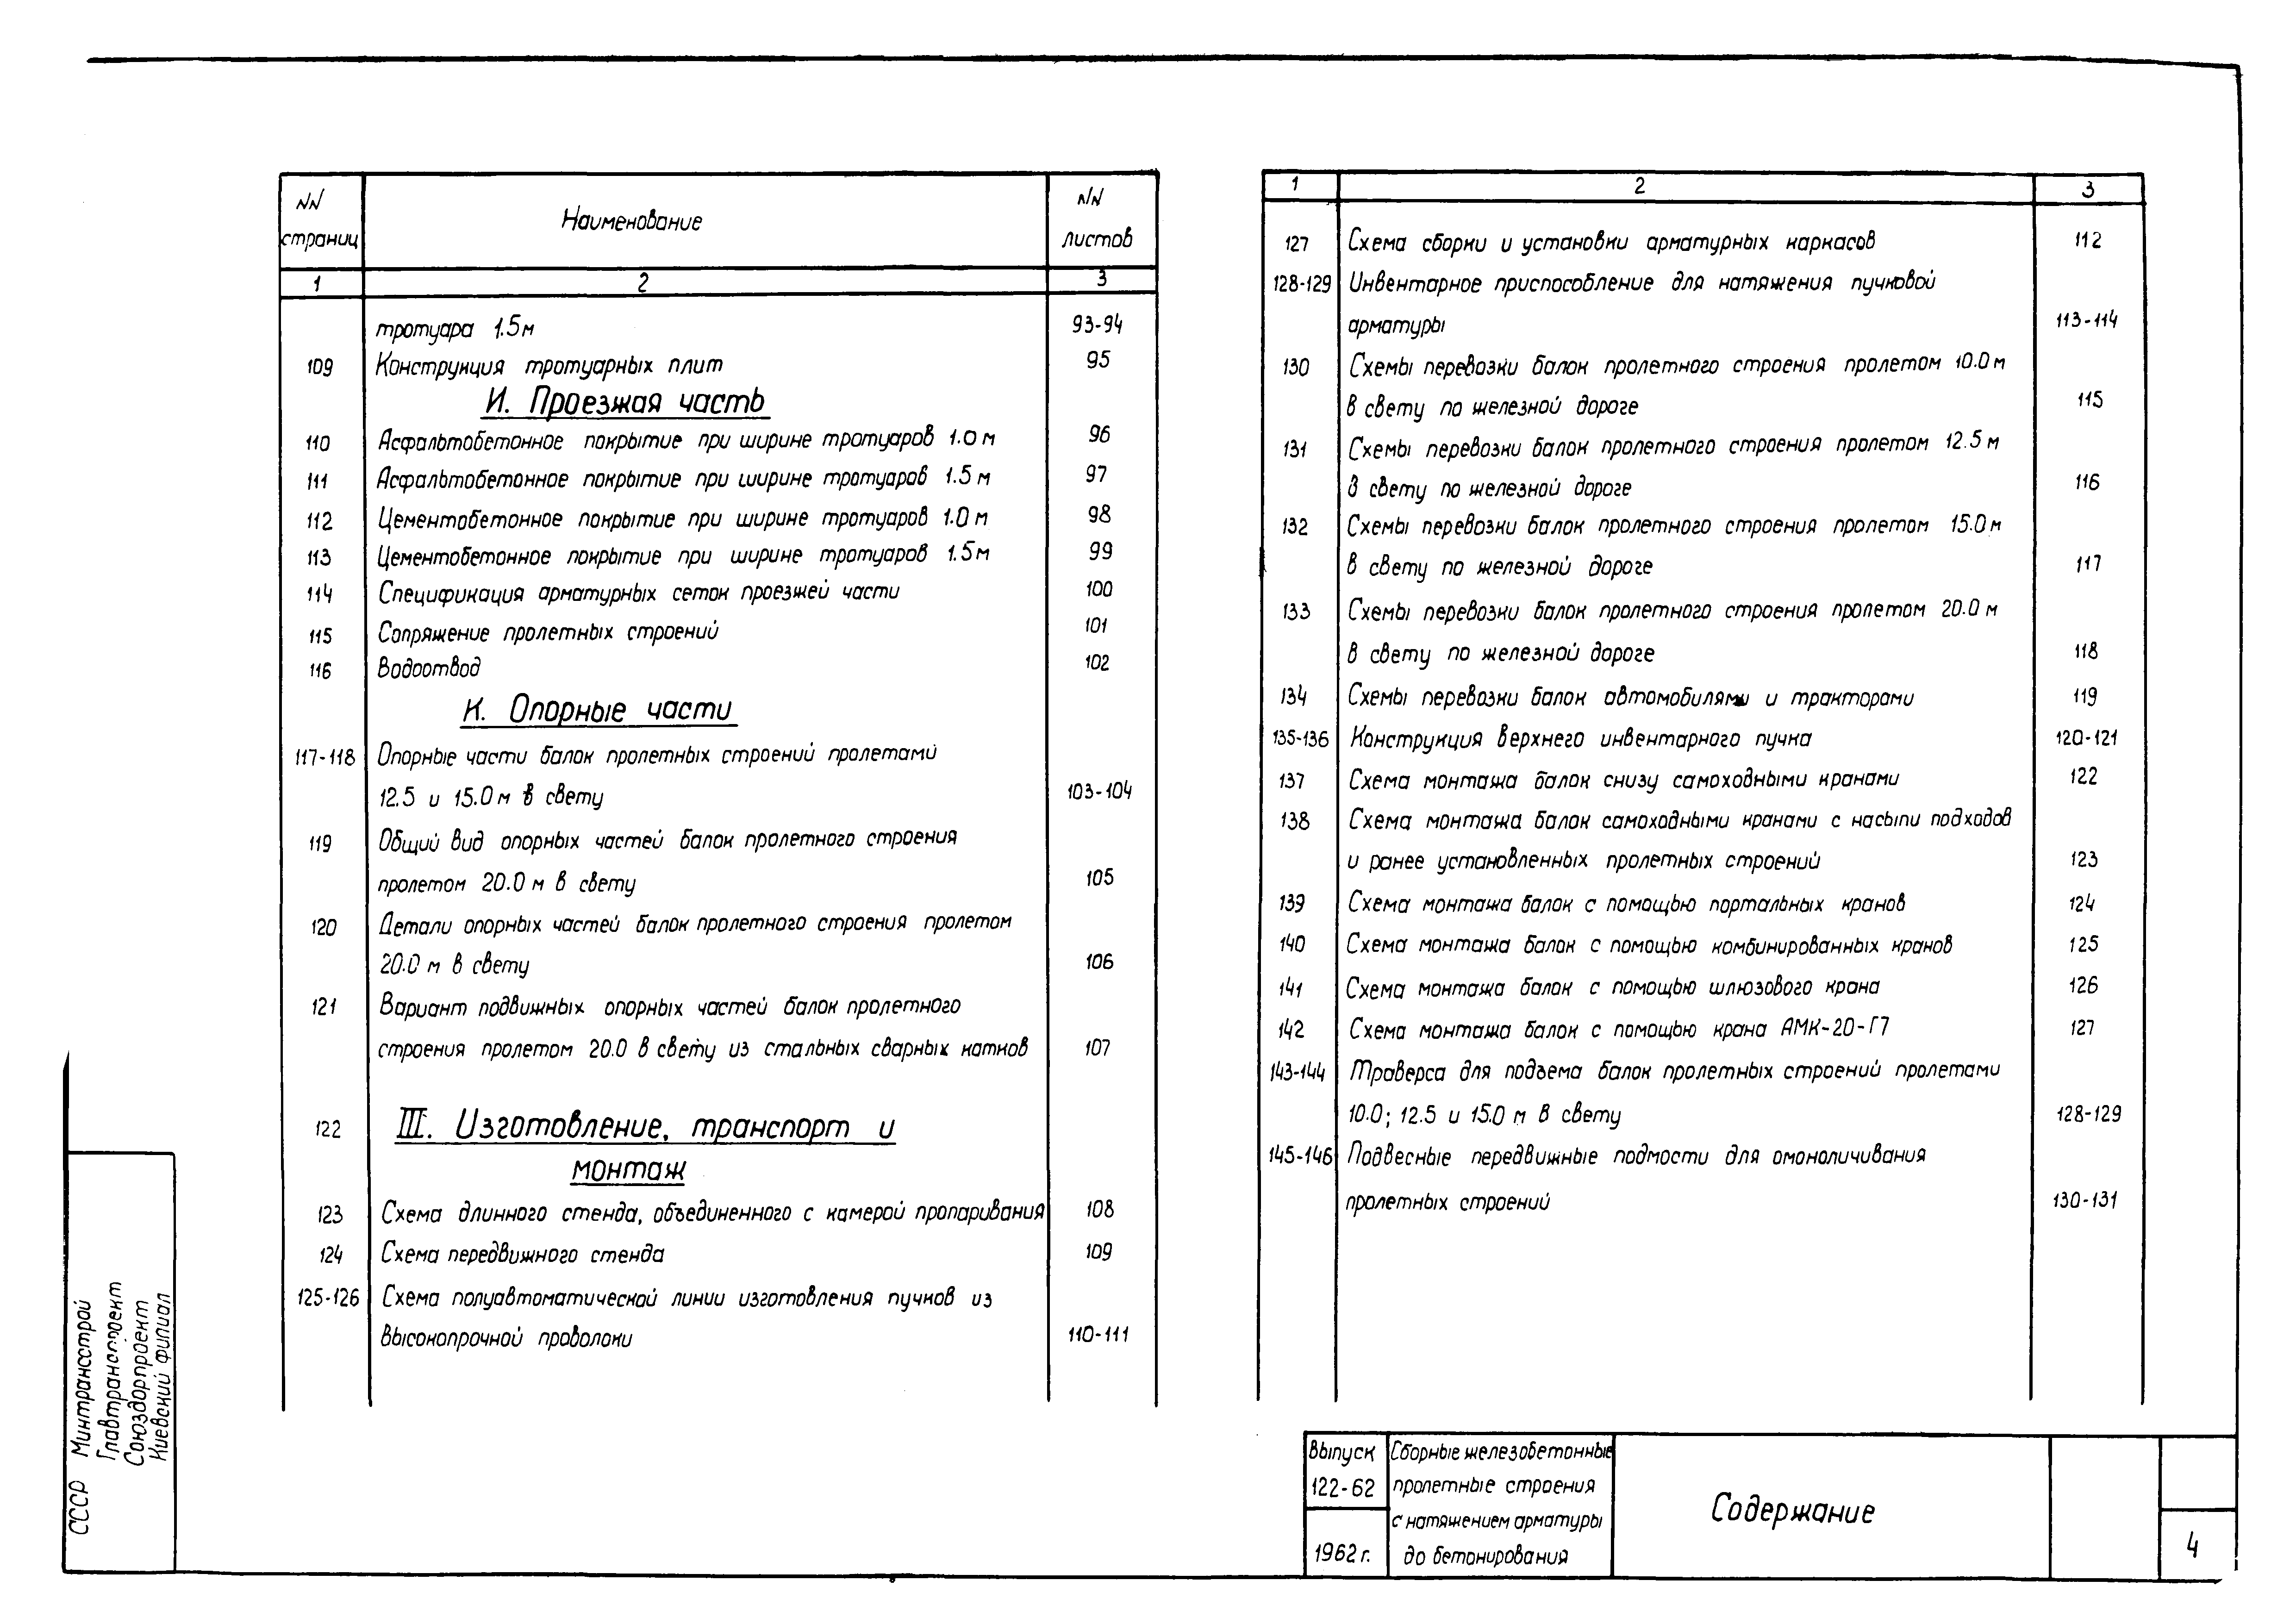 NN
страниц
Наименование
NN
листов
1 2 3
тротуара 1.5м 93-94
109 Конструкция тротуарных плит 95
И. Проезжая часть
110 Асфальтобетонное покрытие при ширине тротуаров 1.0м 96
111 Асфальтобетонное покрытие при ширине тротуаров 1.5м 97
112 Цементобетонное покрытие при ширине тротуаров 1.0м 98
113 Цементобетонное покрытие при ширине тротуаров 1.5м 99
114 Спецификация арматурных сеток проезжей части 100
115 Сопряжение пролетных строений 101
116 Водоотвод 102
К. Опорные части
117-118 Опорные части балок пролетных строений пролетами
12.5 и 15.0м в свету 103-104
119 Общий вид опорных частей балок пролетного строения
пролетом 20.0м в свету 105
120 Детали опорных частей балок пролетного строения пролетом
20.0 м в свету 106
121 Вариант подвижных опорных частей балок пролетного
строения пролетом 20.0 в свету из стальных сварных катков 107
122 III. Изготовление, транспорт и
монтаж
123 Схема длинного стенда, объединенного с камерой пропаривания 108
124 Схема передвижного стенда 109
125-126 Схема полуавтоматической линии изготовления пучков из
высокопрочной проволоки 110-111
1 2 3
127 Схема сборки и установки арматурных каркасов 112
128-129 Инвентарное приспособление для натяжения пучковой
арматуры 113-114
130 Схемы перевозки балок пролетного строения пролетом 10.0м
в свету по железной дороге 115
131 Схемы перевозки балок пролетного строения пролетом 12.5м
в свету по железной дороге 116
132 Схемы перевозки балок пролетного строения пролетом 15.0м
в свету по железной дороге 117
133 Схемы перевозки балок пролетного строения пролетом 20.0м
в свету по железной дороге 118
134 Схемы перевозки балок автомобилями и тракторами 119
135-136 Конструкция верхнего инвентарного пучка 120-121
137 Схема монтажа балок снизу самоходными кранами 122
138 Схема монтажа балок самоходными кранами с насыпи подходов
и ранее установленных пролетных строений 123
139 Схема монтажа балок с помощью портальных кранов 124
140 Схема монтажа балок с помощью комбинированных кранов 125
141 Схема монтажа балок с помощью шлюзового крана 126
142 Схема монтажа балок с помощью крана АМК-20-Г7 127
143-144 Траверса для подъема балок пролетных строений пролетами
10.0; 12.5 и 15.0 м в свету 128-129
145-146 Подвесные передвижные подмости для омоноличивания
пролетных строений 130-131
СССР Минтрансстрой
Главтранспроект
Союздорпроект
Киевский филиал
Выпуск
122-62
1962г.
Сборные железобетонные
пролетные строения
с натяжением арматуры
до бетонирования
Содержание
4